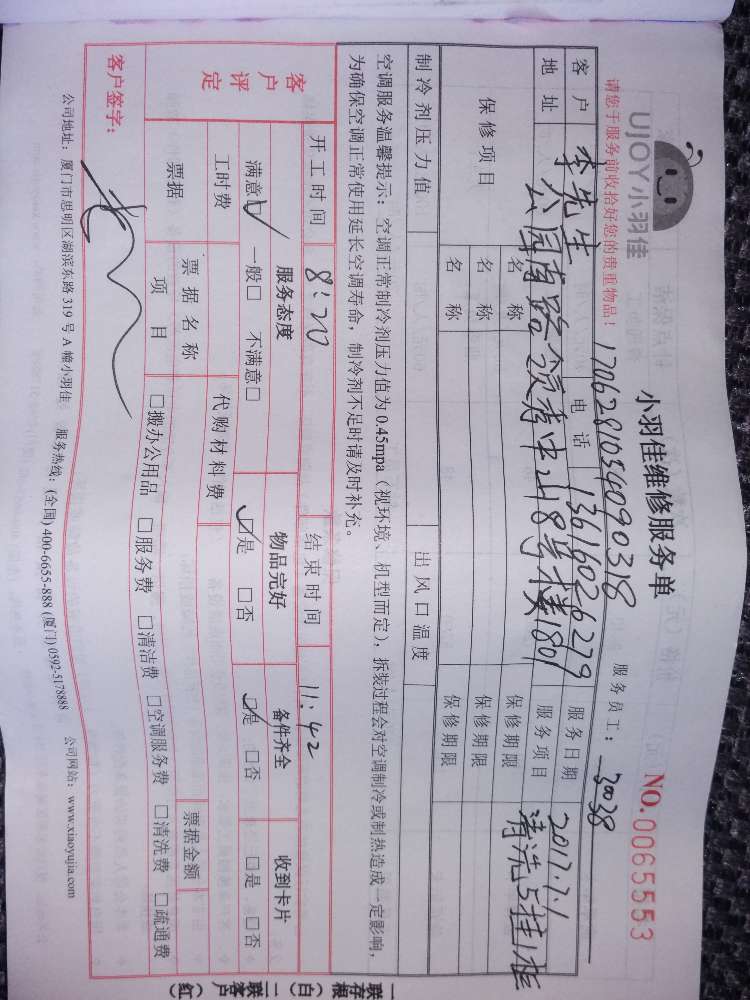 UJOY小羽佳
小羽佳维修服务单
NO.0065553
请您于服务前收拾好您的贵重物品！
1706281034090318
服务员工：3038
客户 李先生 电话 13616026279 服务日期 2017.7.1
地址 公园南路领秀中山8号楼1801 服务项目 清洗5挂1柜
保修项目 名称 保修期限
名称 保修期限
名称 保修期限
制冷剂压力值 出风口温度
空调服务温馨提示：空调正常制冷剂压力值为0.45mpa（视环境、机型而定），拆装过程会对空调制冷或制热造成一定影响，
为确保空调正常使用延长空调寿命，制冷剂不足时请及时补充。
开工时间 8:20 结束时间 11:42
客户评定 服务态度 物品完好 备件齐全 收到卡片
满意☑ 一般□ 不满意□ ☑是 □否 ☑是 □否 □是 □否
工时费 代购材料费
票据 票据名称 票据金额
项目 □搬办公用品 □服务费 □清洁费 □空调服务费 □清洗费 □疏通费
客户签字：
公司地址：厦门市思明区湖滨东路319号A幢小羽佳 服务热线：(全国) 400-6655-888 (厦门) 0592-5178888 公司网站：www.xiaoyujia.com
一联存根（白） 二联客户（红）